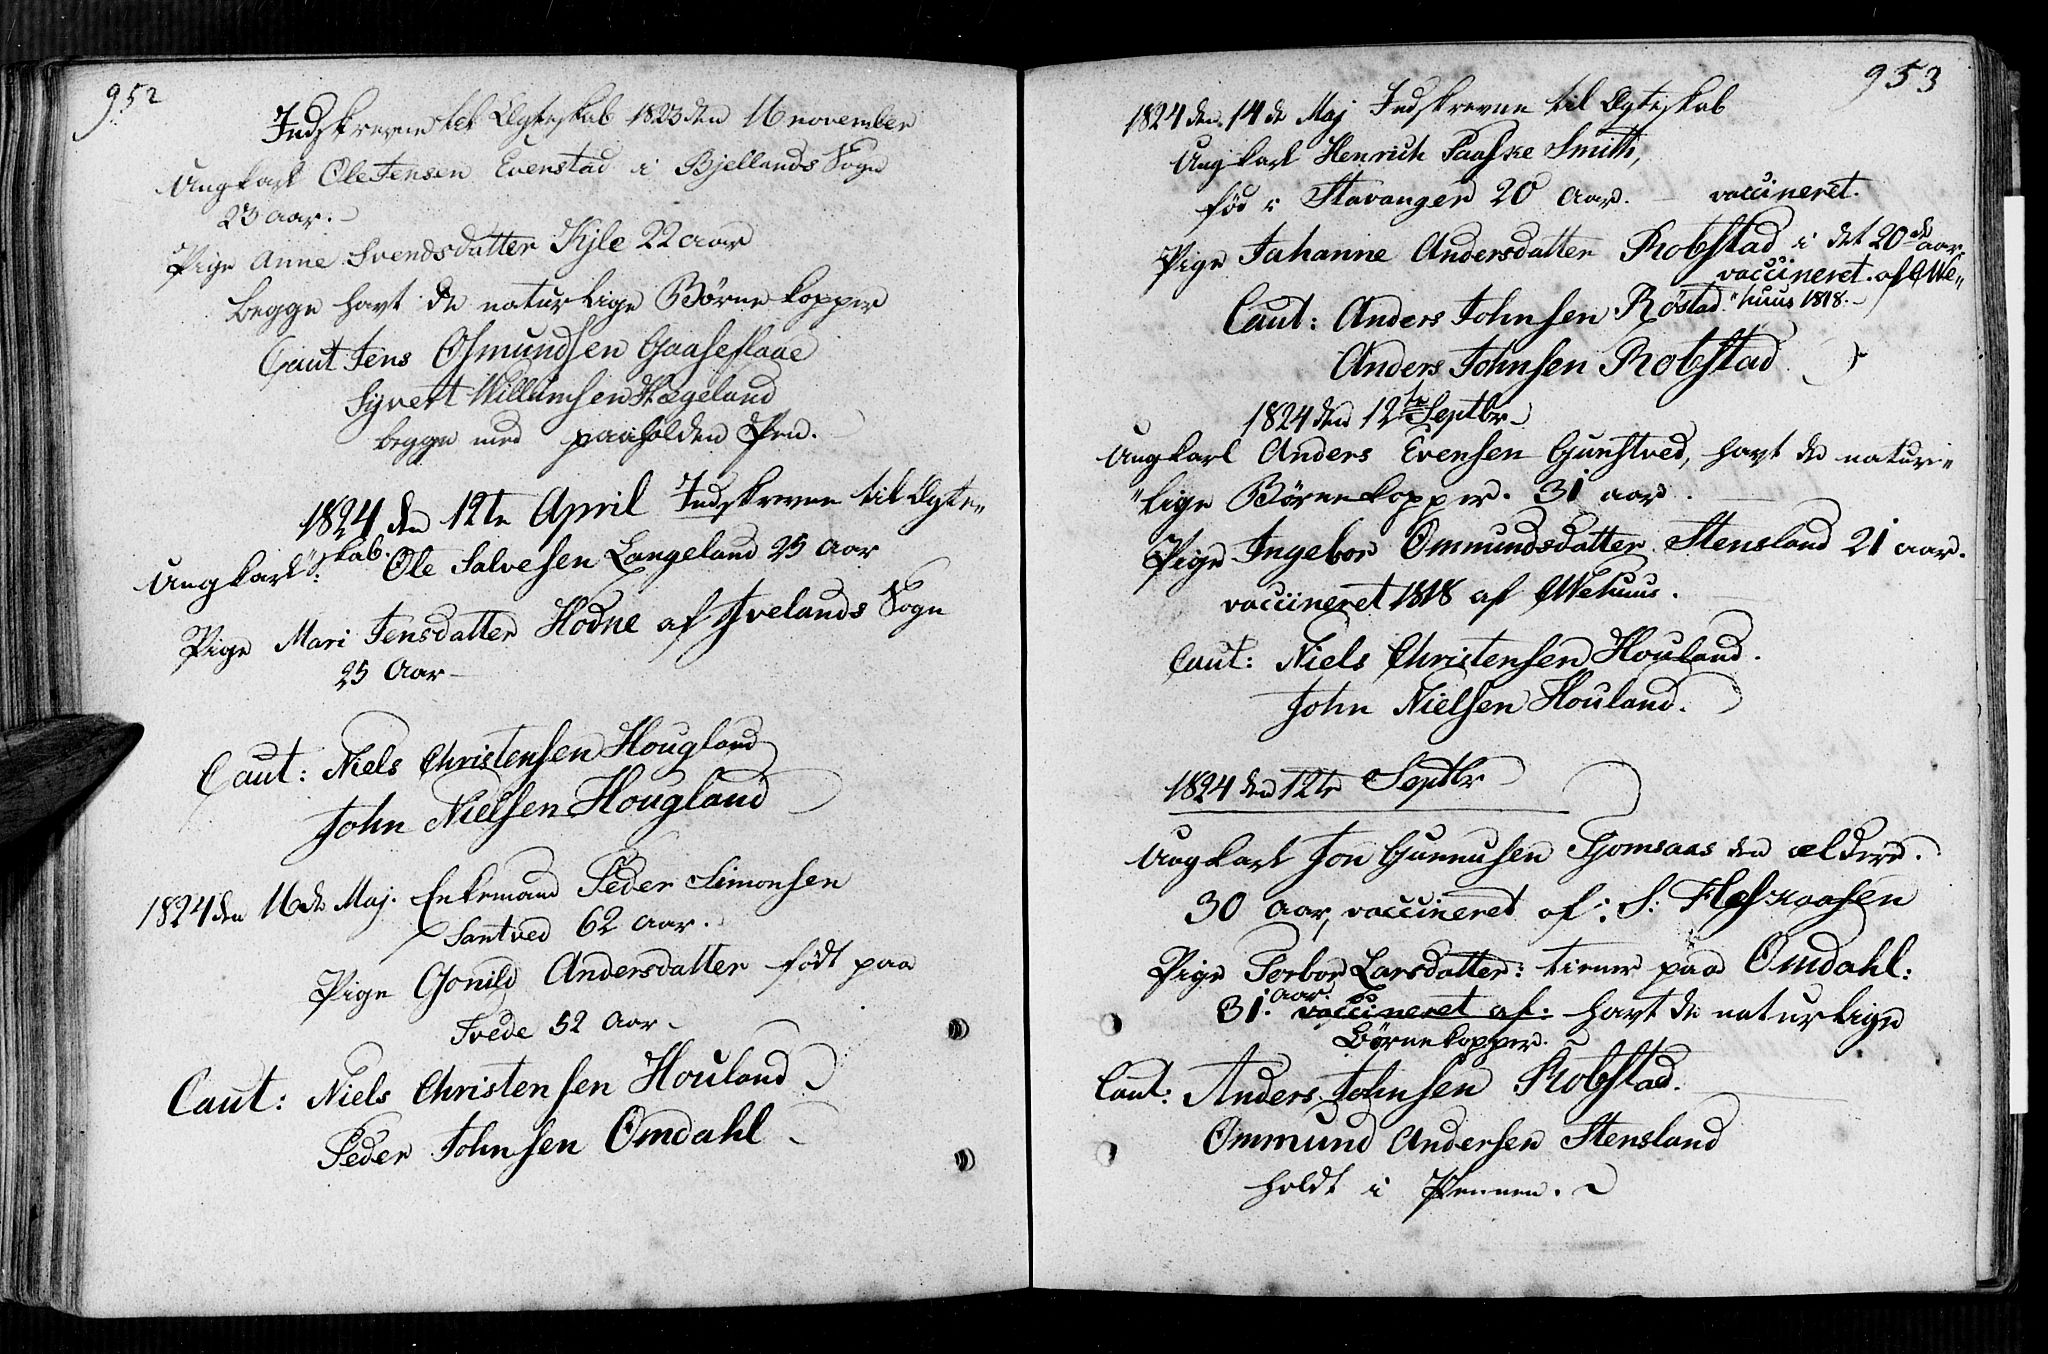 952
Indskrevne til Ægteskab 1823 den 16 november
Ungkarl Ole Jensen Evenstad i Bjellands Sogn
23 aar.
Pige Anne Svendsdatter Kyle 22 aar
begge havt de naturlige Børnekopper
Caut Jens Osmundsen Gaaseflaae
Syvert Willumsen Hægeland
begge med paaholden Pen.
1824 den 12te April Indskrevne til Ægte„
„skab.
Ungkarl: Ole Salvesen Langeland 25 Aar
Pige Mari Jensdatter Hodne af Ivelands Sogn
25 Aar
Caut: Niels Christensen Hougland
John Nielsen Hougland
1824 den 16de Maj. Enkemand Peder Simonsen
Santved 62 aar.
Pige Gonild Andersdatter født paa
Tvede 52 Aar
Caut: Niels Christensen Houland
Peder Johnsen Omdahl
953
1824 den 14de Maj Indskrevne til Ægteskab
Ungkarl Henrich Paaske Smith,
fød i Stavanger 20 Aar. – vaccineret.
Pige Johanne Andersdatter Robstad i det 20de aar
vaccineret af We„
„huus 1818.
Caut: Anders Johnsen Röstad
Anders Johnsen Robstad
1824 den 12te Septbr
Ungkarl Anders Evensen Gunstved, havt de natur„
„lige Børnekopper. 31 aar.
Pige Ingebor Ommundsdatter Stensland 21 aar.
vaccineret 1818 af Wehuus.
Caut: Niels Christensen Houland.
John Nielsen Houland.
1824 den 12te Septbr
Ungkarl Jon Gunnusen Tjomsaas den ældere.
30 Aar, vaccineret af: S:
Pige Torbor Larsdatter: tiener paa Omdahl:
31 aar. vaccineret af: havt de naturlige
Børnekopper.
Caut: Anders Johnsen Robstad.
Ommund Andersen Stensland
holdt i Pennen.